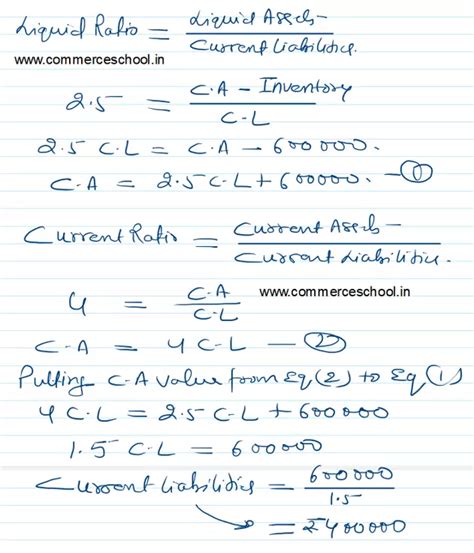 Liquid Ratio = Liquid Assets / Current Liabilities
www.commerceschool.in
2.5 = C.A - Inventory / C-L
2.5 C.L = C.A - 600000.
C.A = 2.5 C-L + 600000. - ①
Current Ratio = Current Assets / Current Liabilities.
4 = C.A / C-L
www.commerceschool.in
C-A = 4 C-L - ②
Putting C-A value from Eq (2) to Eq (1)
4 C.L = 2.5 C-L + 600000
1.5 C.L = 600000
Current Liabilities = 600000 / 1.5
= ₹400000